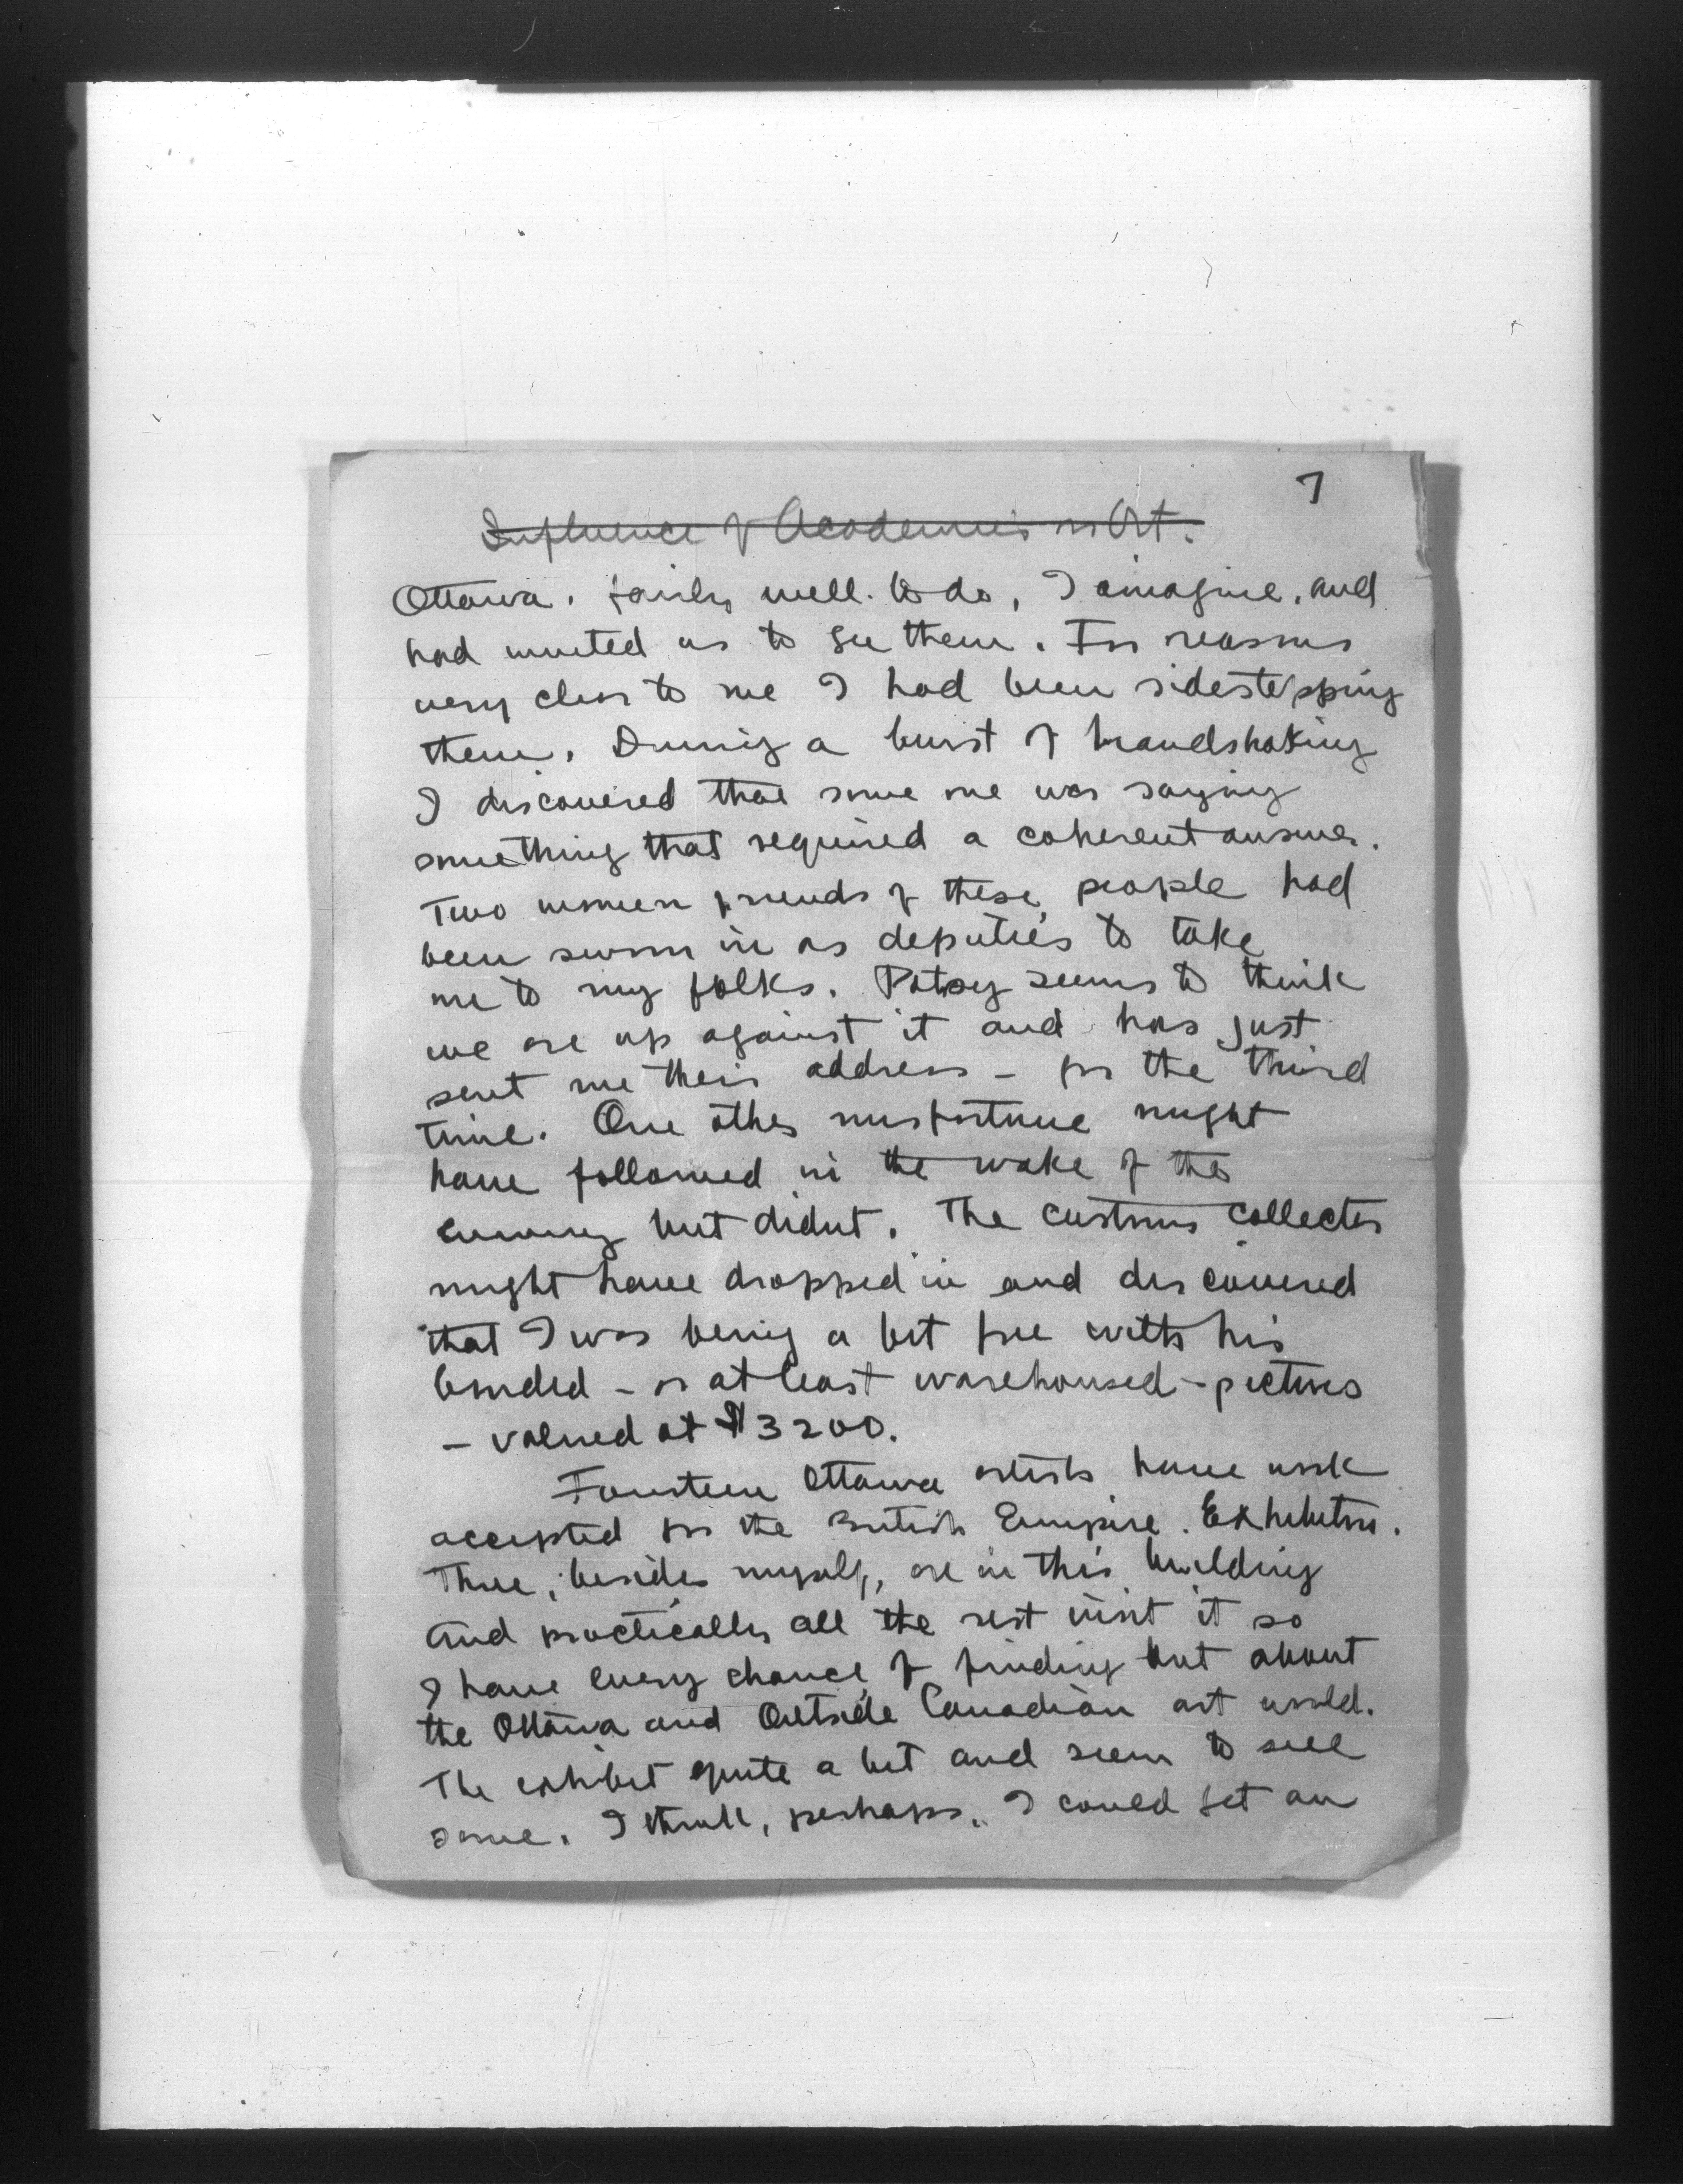 7
Influence of Academies on Art.
Ottawa. fairly well. to do, I imagine, and
had invited us to see them. For reasons
very clear to me I had been sidestepping
them. During a burst of handshaking
I discovered that some one was saying
something that required a coherent answer.
Two women friends of these people had
been sworn in as deputies to take
me to my folks. Patsy seems to think
we are up against it and has just
sent me their address - for the third
time. One other misfortune might
have followed in the wake of the
but didnt. The customs collector
might have dropped in and discovered
that I was being a bit free with his
bonded - or at least warehoused - pictures
- valued at $3200.
Fourteen Ottawa artists have work
accepted for the British Empire. Exhibition.
Three, besides myself, are in this building
and practically all the rest visit it so
I have every chance of finding out about
the Ottawa and Outside Canadian art world.
The exhibit quite a bit and seem to sell
some. I think, perhaps, I could get an